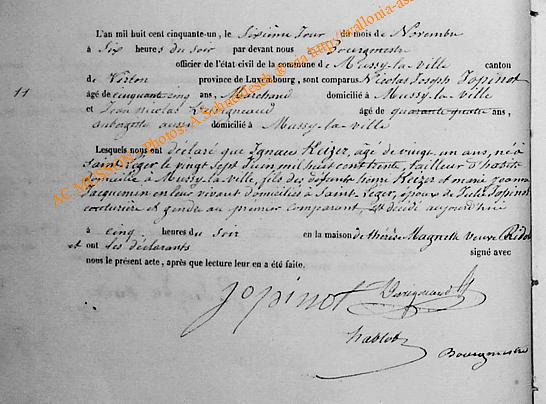 L'an mil huit cent cinquante-un, le sixième jour du mois de Novembre
à six heures du soir par devant nous Bourgmestre
officier de l'état civil de la commune de Mussy-la-ville canton
de Virton province de Luxembourg, sont comparus Nicolas Joseph Jopinot
11 âgé de cinquante cinq ans, Marchand domicilié à Mussy-la-ville
et Jean Nicolas âgé de quarante quatre ans,
aubergiste aussi domicilié à Mussy-la-ville
Lesquels nous ont déclaré que Ignace Keizer, agé de vingt un ans, né à
Saint-Léger le vingt sept Juin mil huit cent trente, tailleur d'habits
domicilié à Mussy-la-ville, fils des défunts Keizer et marie jeanne
Jacquemin en leur vivant domiciliés à Saint-Léger, époux de Julie Jopinot
couturière et gendre au premier comparant, est décédé aujourd'hui
à cinq heures du soir en la maison de thérèse Magnette veuve
et ont les déclarants signé avec
nous le présent acte, après que lecture leur en a été faite.
Jopinot
Bourgmestre
AC MUSSON - Photos: A. Schrederech @ via http://wallonia-as